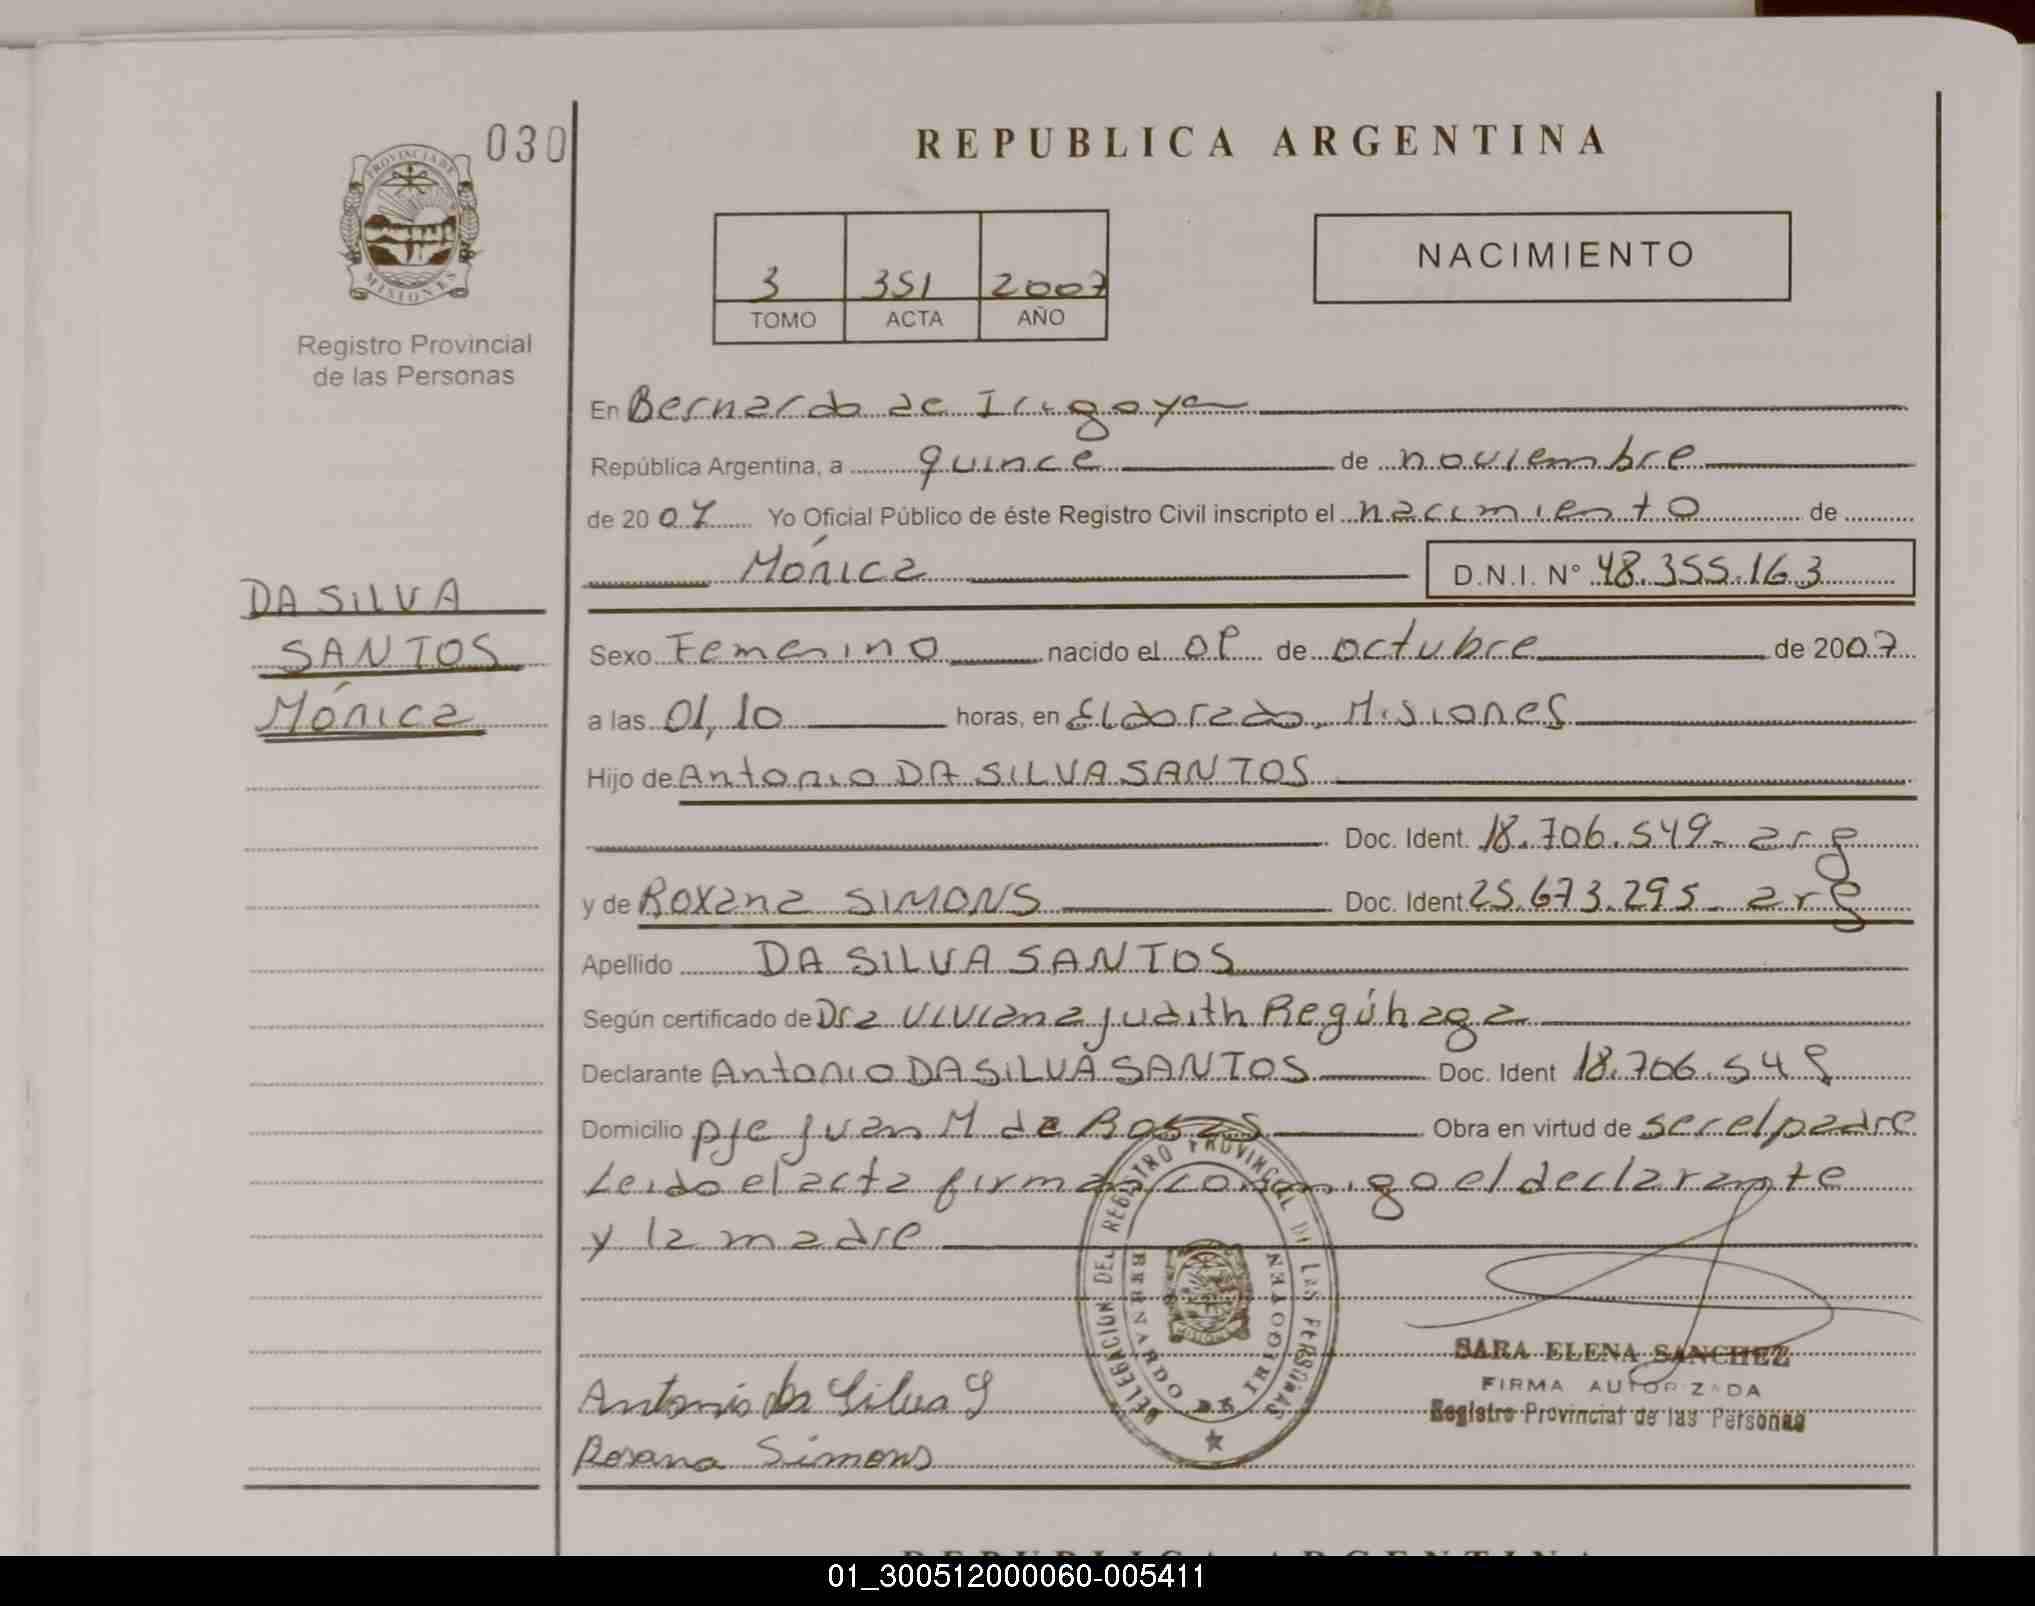 030
PROVINCIA DE
MISIONES
Registro Provincial
de las Personas
REPUBLICA ARGENTINA
3 351 2007
TOMO ACTA AÑO
NACIMIENTO
En Bernardo de Irigoyen
República Argentina, a quince de noviembre
de 2007 Yo Oficial Público de éste Registro Civil inscripto el nacimiento de
Mónica D.N.I. N° 48.355.163
DA SILVA
SANTOS
Mónica
Sexo Femenino nacido el de octubre de 2007
a las 01,10 horas, en Eldorado Misiones
Hijo de Antonio DA SILVA SANTOS
Doc. Ident. 18.706.549- arg
y de Roxana SIMONS Doc. Ident 25.673.295- arg
Apellido DA SILVA SANTOS
Según certificado de Dra Viviana Judith
Declarante Antonio DA SILVA SANTOS Doc. Ident 18.706.549
Domicilio pje Juan M de Rosas Obra en virtud de ser el padre
Leido el acta firman conmigo el declarante
y la madre
DELEGACION DEL REGISTRO PROVINCIAL DE LAS PERSONAS
BERNARDO DE IRIGOYEN
SARA ELENA SANCHEZ
FIRMA AUTORIZADA
Registro Provincial de las Personas
Antonio da Silva S
Roxana Simons
REPUBLICA ARGENTINA
01_300512000060-005411